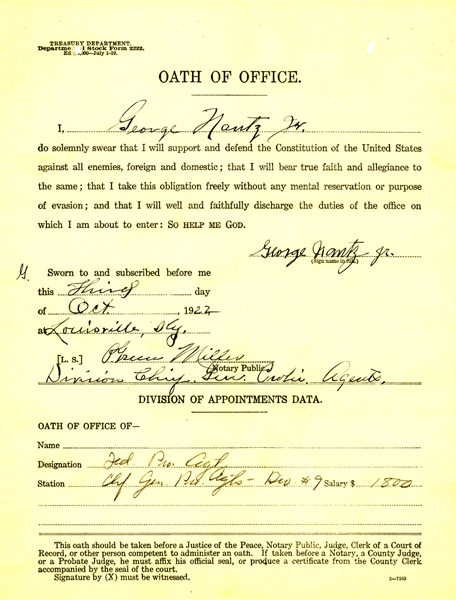 TREASURY DEPARTMENT.
Stock Form 2222.
July 1-19.
OATH OF OFFICE.
I, George Nantz Jr.
do solemnly swear that I will support and defend the Constitution of the United States
against all enemies, foreign and domestic; that I will bear true faith and allegiance to
the same; that I take this obligation freely without any mental reservation or purpose
of evasion; and that I will well and faithfully discharge the duties of the office on
which I am about to enter: SO HELP ME GOD.
George Nantz Jr.
(Sign name in full.)
Sworn to and subscribed before me
this Third day
of Oct. 1922
at Louisville, Ky.
[L. S.] Miller
Notary Public.
Division Chief, Gen. Prohi. Agents.
DIVISION OF APPOINTMENTS DATA.
OATH OF OFFICE OF—
Name
Designation Fed Pro. Agt
Station Chf Gen Pro. Agts - Div #9 Salary $ 1800
This oath should be taken before a Justice of the Peace, Notary Public, Judge, Clerk of a Court of
Record, or other person competent to administer an oath. If taken before a Notary, a County Judge,
or a Probate Judge, he must affix his official seal, or produce a certificate from the County Clerk
accompanied by the seal of the court.
Signature by (X) must be witnessed.
2—7243